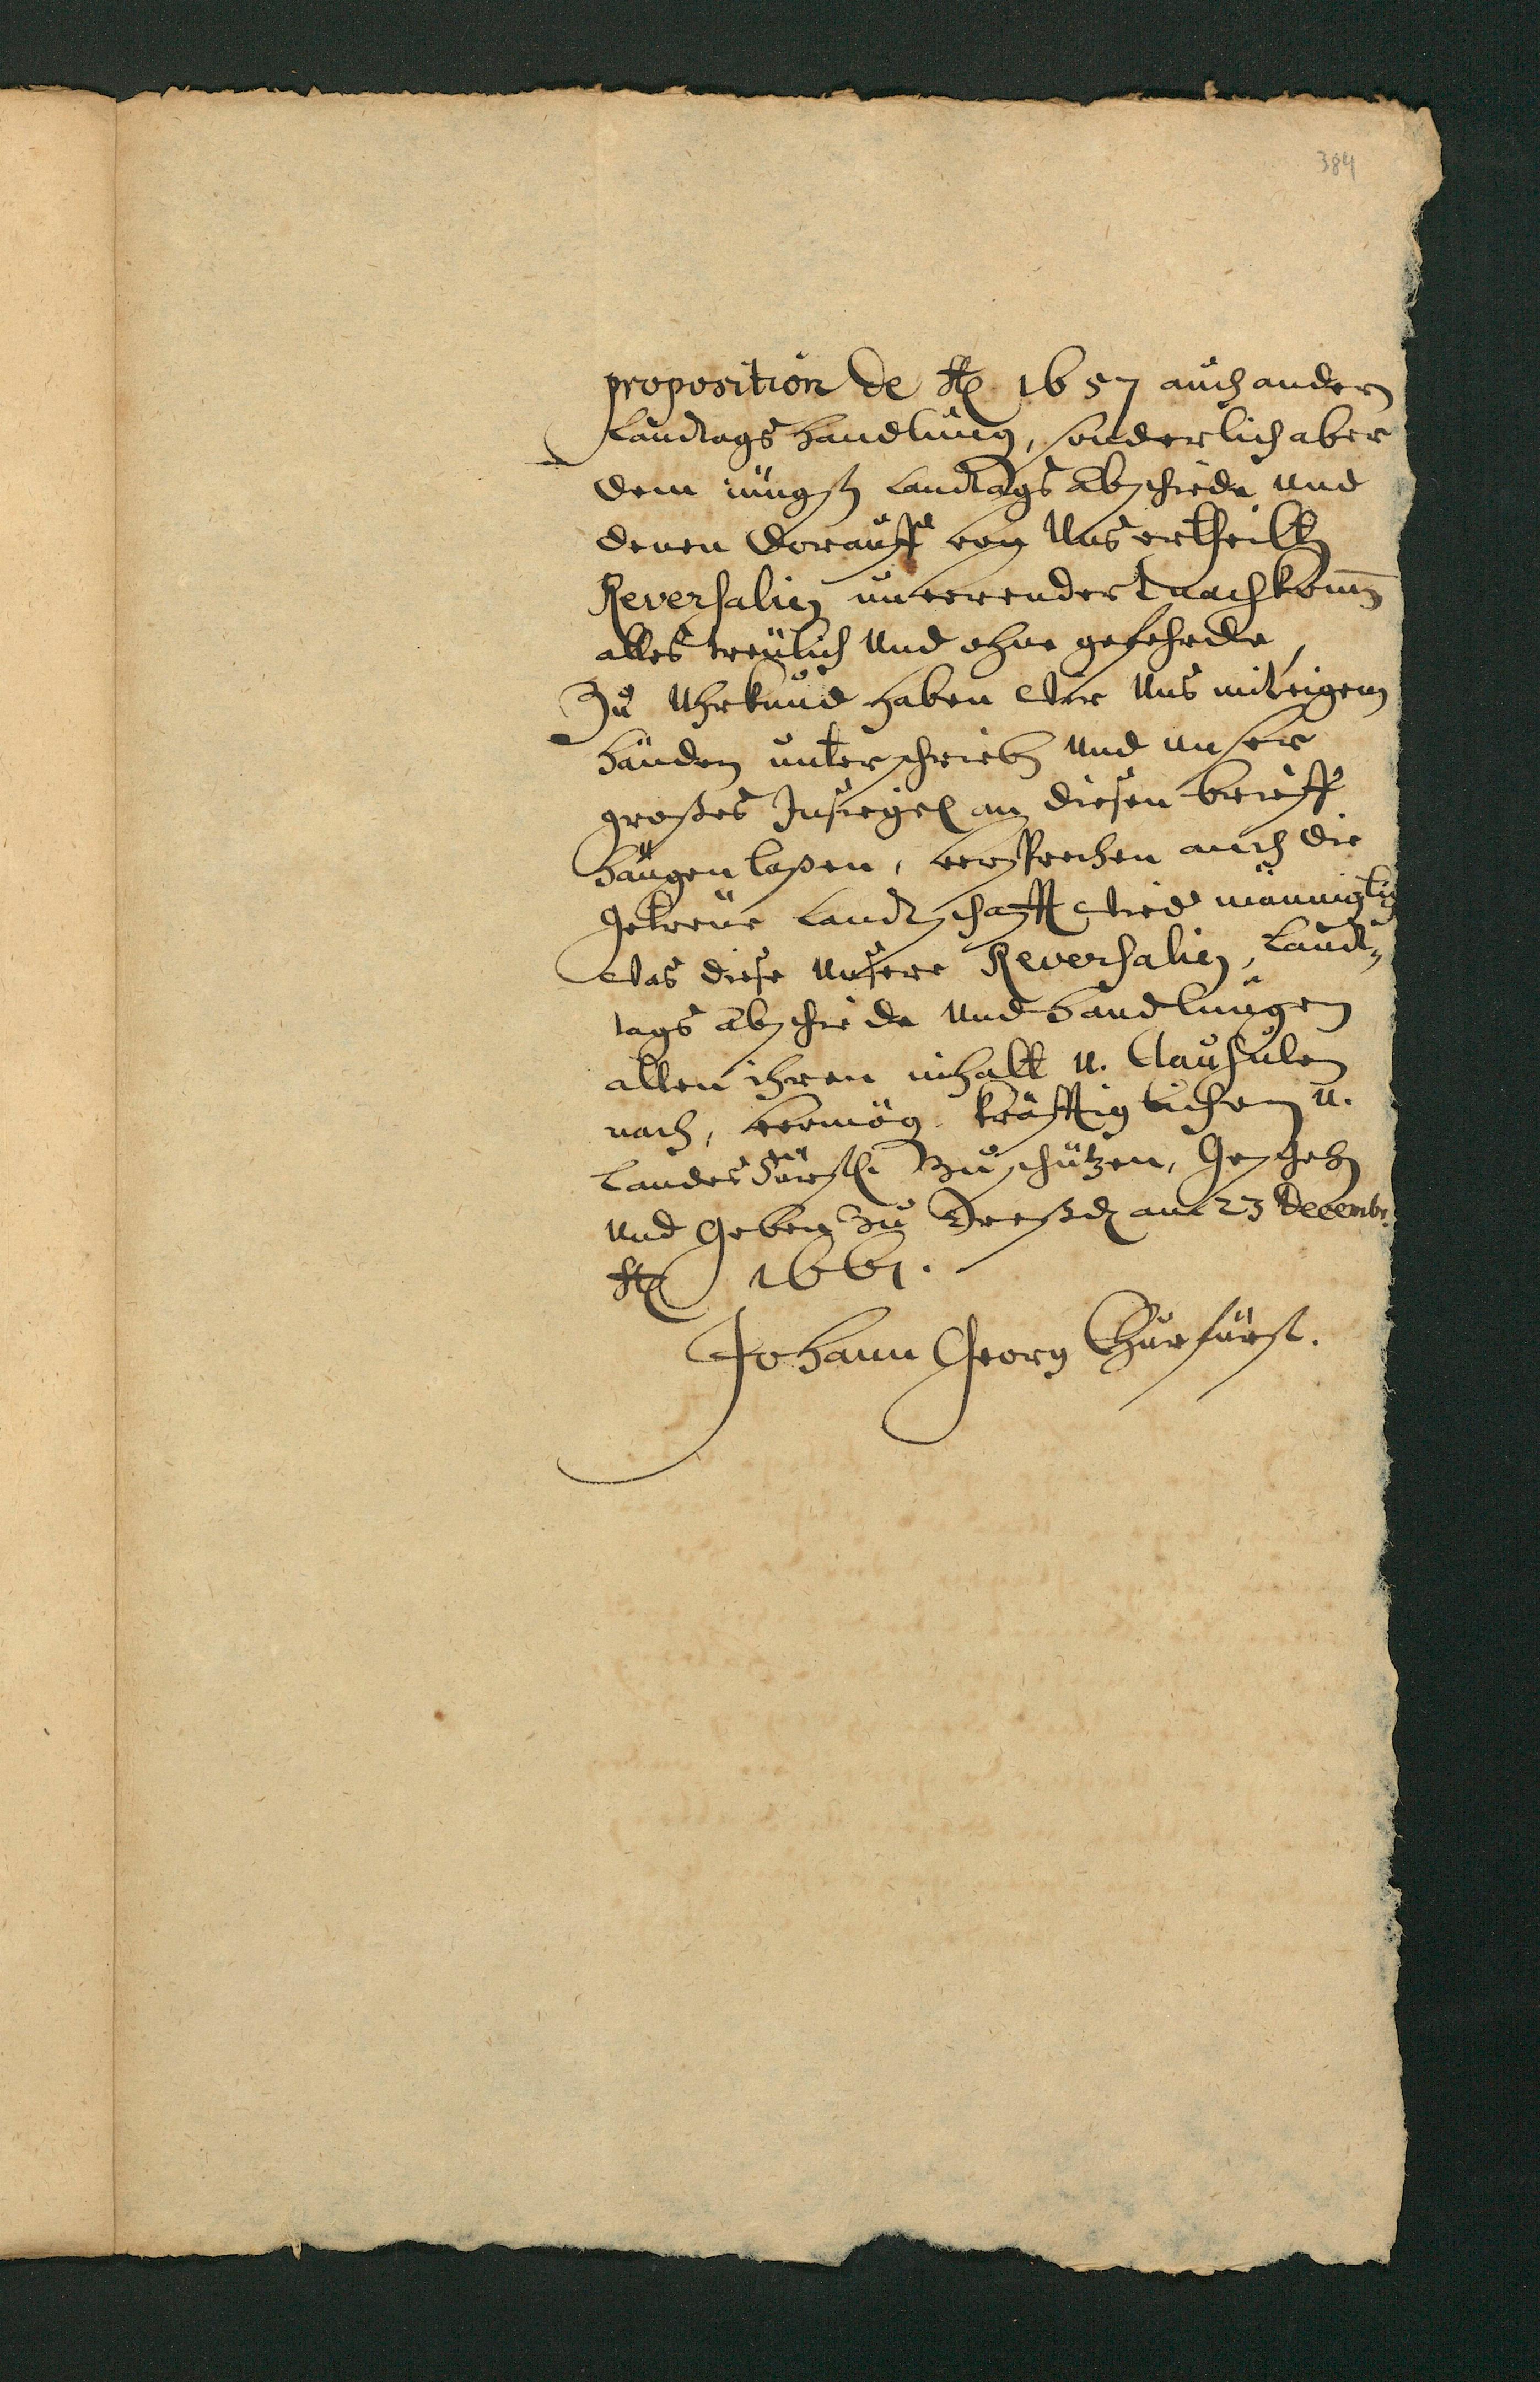 384
proposition de Ao 1657 auch andern
Landtags handlung, sonderlich aber
dem jüngsten Landtags Abschiede und
denen dorauff von Uns ertheilten
Reversalien unverendert nachkommen
alles treulich und ohne gefehrde,
Zu Uhrkund haben Wir Uns mit eigenen
händen unterschrieben und unser
großes Insiegel an diesen brieff
hängen laßen, versprechen auch die
getreue Landtschafft wied männiglich
das diese unsere Reversalien, Landt-
tags abschiede und handlungen
allen ihren inhalt u. Clausulen
nach, vermög kräfftiglichen u.
Landes Fürstl. zu schützen, Geschehen
und Geben zu Dreßden am 23 Decembr.
Ao 1661.
Johann Georg Churfürst.